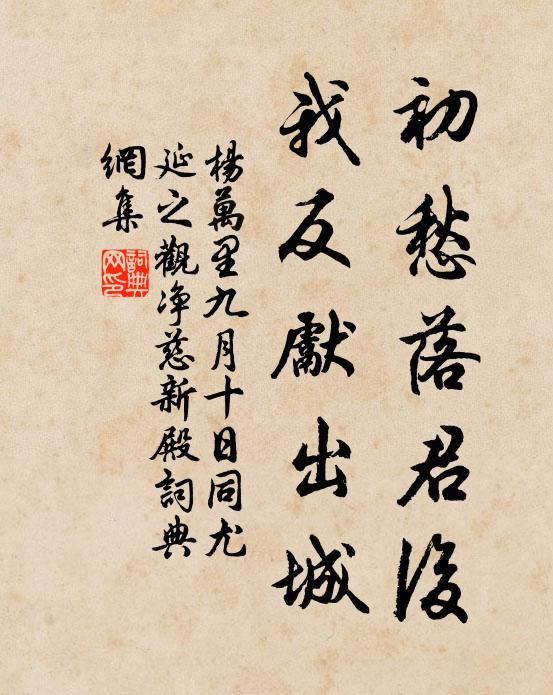 初愁落君後
我反獻出城
楊萬里九月十日同尤
延之觀净慈新殿詞典
網集
詞典網印